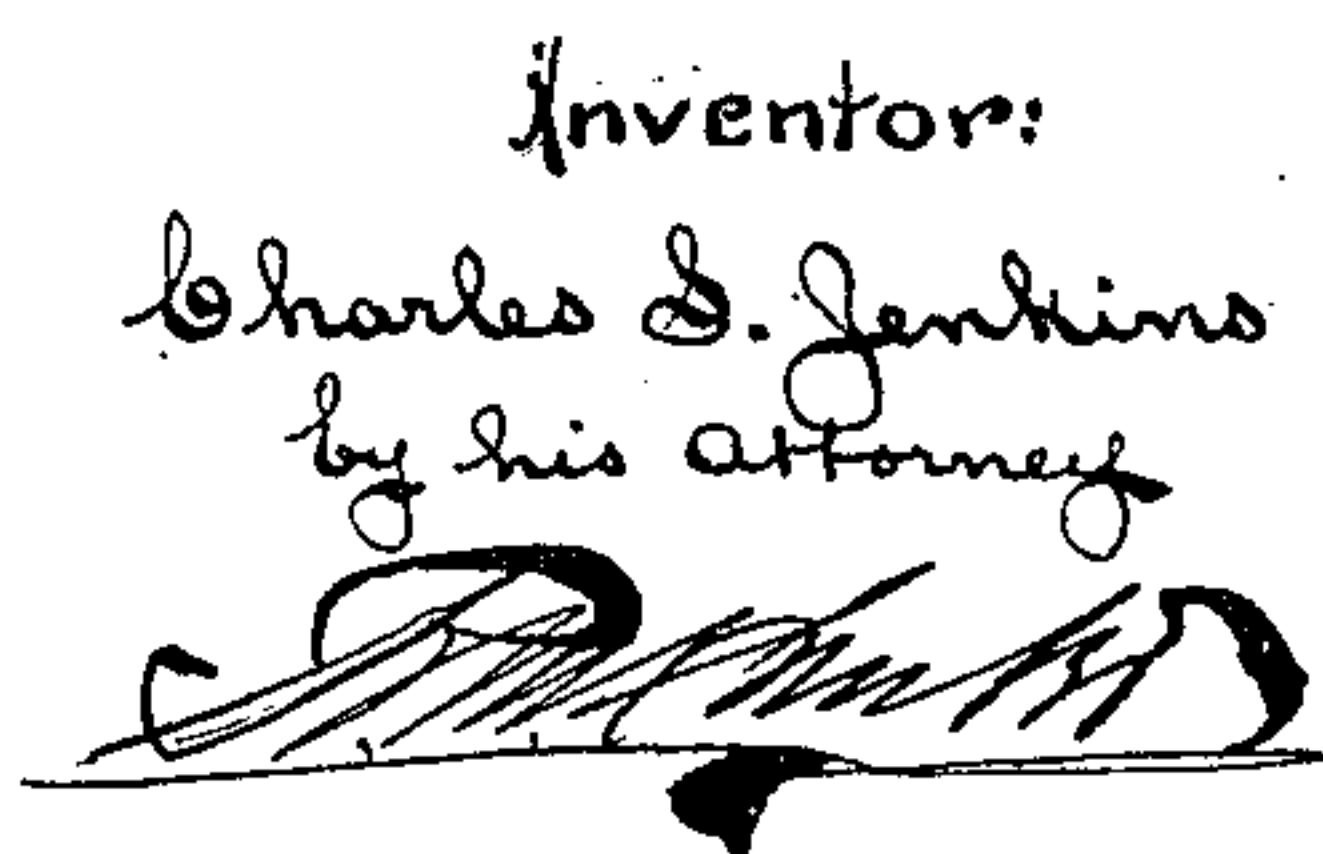 Inventor:
Charles S. Jenkins
by his Attorney